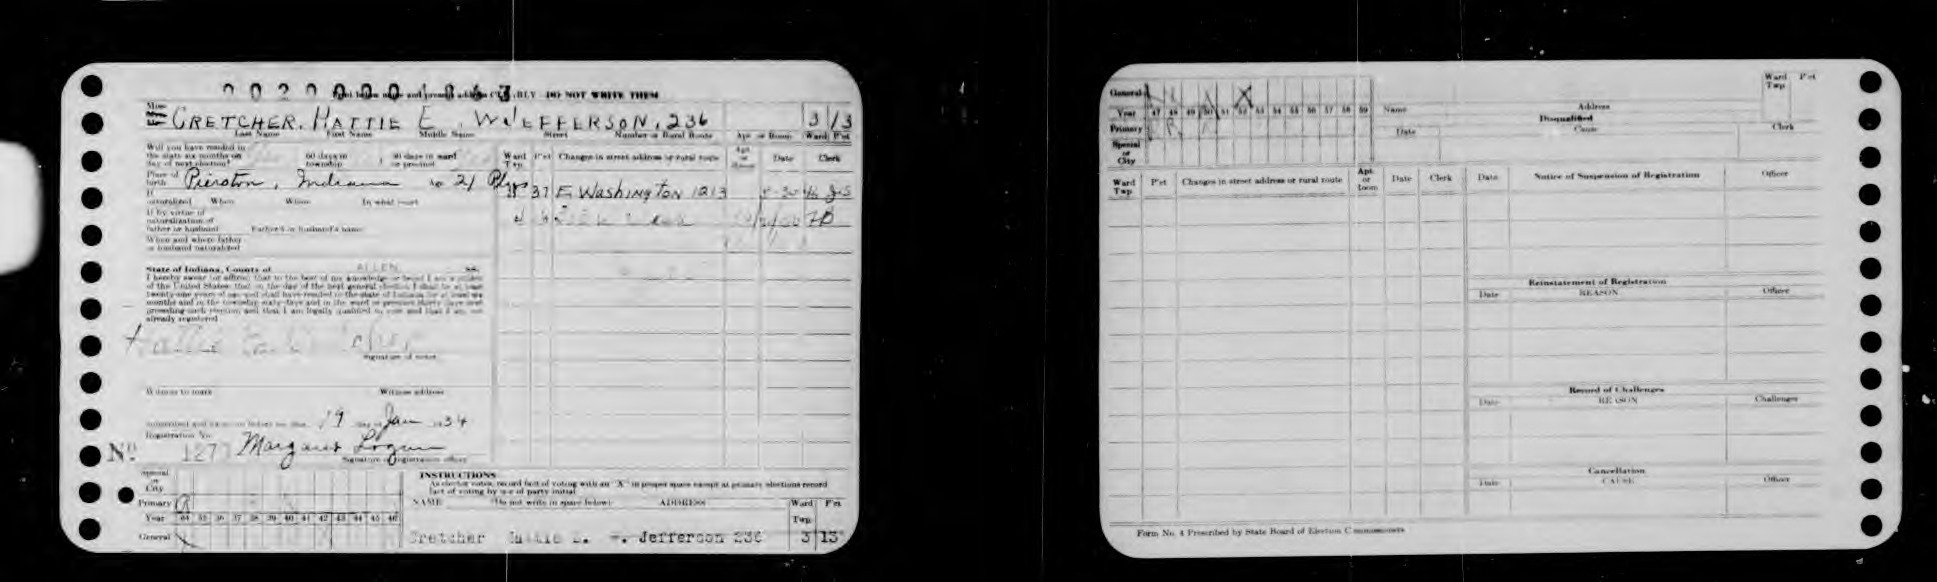 DO NOT WRITE THEM
Miss
CRETCHER, HATTIE E. W. JEFFERSON, 236 3 13
Last Name First Name Middle Name Street Number or Rural Route Apt. or Room Ward P'ct
Will you have resided in
the state six months on 60 days in 30 days in ward
day of next election? township or precinct
Ward Twp. P'ct Changes in street address or rural route Apt. or Room Date Clerk
Place of birth Pierston, Indiana Age 21 Plus
37 E Washington 1213
If naturalized When Where In what court
If by virtue of
naturalization of
father or husband Father's or husband's name
When and where father
or husband naturalized
State of Indiana, County of ALLEN ss.
I hereby swear (or affirm) that to the best of my knowledge or belief I am a citizen
of the United States; that on the day of the next general election I shall be at least
twenty-one years of age and shall have resided in the state of Indiana for at least six
months and in the township sixty days and in the ward or precinct thirty days next
preceding such election and that I am legally qualified to vote and that I am not
already registered
Hattie
Signature of voter
Witness to mark Witness address
Subscribed and sworn to before me this 19 day of Jan 1934
Registration No.
No. 127 Margaret Logan
Signature of registration officer
Special or City
INSTRUCTIONS
As elector votes, record fact of voting with an "X" in proper space except at primary elections record
fact of voting by use of party initial
Primary R
NAME (Do not write in space below) ADDRESS Ward Twp. P'ct
Year 34 35 36 37 38 39 40 41 42 43 44 45 46
General
Cretcher Hattie E. W. Jefferson 236 3 13
General
Year 47 48 49 50 51 52 53 54 55 56 57 58 59
Primary R
Special or City
Name Address Ward Twp. P'ct
Disqualified
Date Cause Clerk
Ward Twp. P'ct Changes in street address or rural route Apt. or Room Date Clerk
Date Notice of Suspension of Registration Officer
Reinstatement of Registration
Date REASON Officer
Record of Challenges
Date REASON Challenger
Cancellation
Date CAUSE Officer
Form No. 4 Prescribed by State Board of Election Commissioners